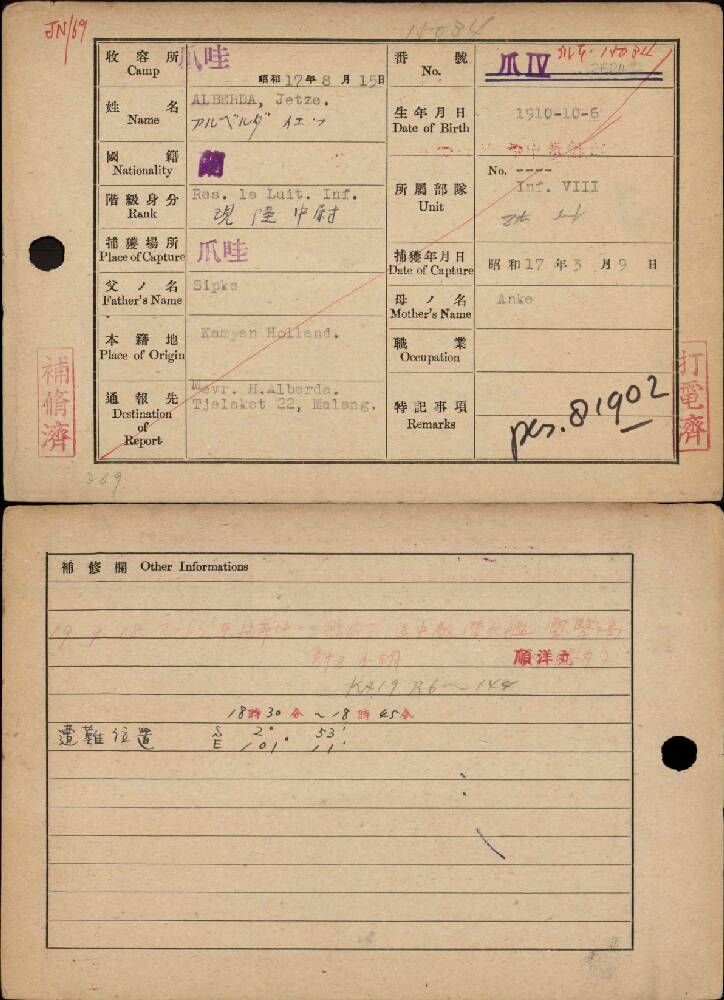 JN/69
收容所
Camp
爪哇
昭和17年8月15日
番號
No.
爪IV
姓名
Name
ALBERDA, Jetze.
アルベルダ イエツ
生年月日
Date of Birth
1910-10-6
國籍
Nationality
蘭
階級身分
Rank
Res. 1e Luit. Inf.
陸中尉
所屬部隊
Unit
No. ----
Inf. VIII
捕獲場所
Place of Capture
爪哇
捕獲年月日
Date of Capture
昭和17年3月9日
父ノ名
Father's Name
Sipke
母ノ名
Mother's Name
Anke
本籍地
Place of Origin
Kampen Holland.
職業
Occupation
通報先
Destination
of
Report
Mevr. H.Alberda.
Tjelaket 22, Malang.
特記事項
Remarks
pcs. 81902
補脩濟
打電濟
369
補修欄 Other Informations
19 9 18
順洋丸
18時30分~18時45分
遭難位置 S 2° 53'
E 101° 11'